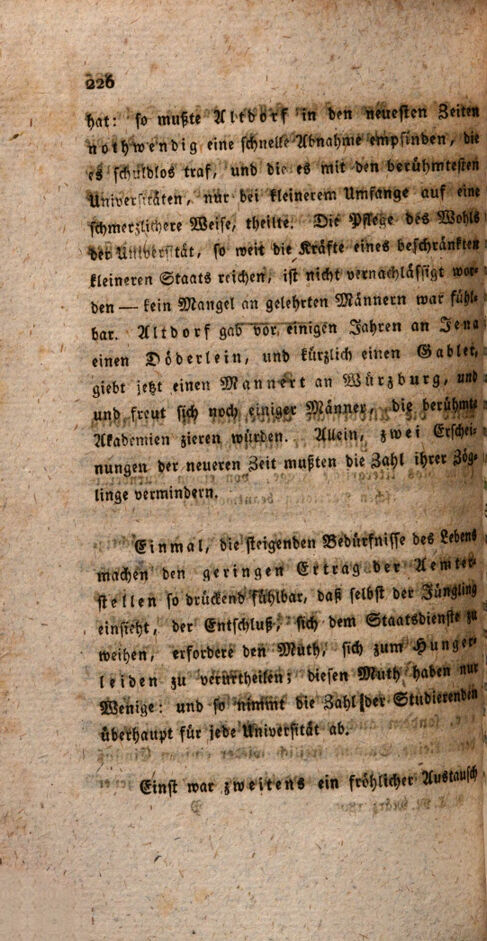 226
hat: so mußte Altdorf in den neuesten Zeiten
nothwendig eine schnelle Abnahme empfinden, die
es schuldlos traf, und die es mit den berühmtesten
Universitäten, nur bei kleinerem Umfange auf eine
schmerzlichere Weise, theilte. Die Pflege des Wohls
der Universität, so weit die Kräfte eines beschränkten
kleineren Staats reichen, ist nicht vernachlässigt wor-
den — kein Mangel an gelehrten Männern war fühl-
bar. Altdorf gab vor einigen Jahren an Jena
einen Döderlein, und kürzlich einen Gabler,
giebt jetzt einen Mannert an Würzburg, und
und freut sich noch einiger Männer, die berühmte
Akademien zieren würden. Allein, zwei Erschei-
nungen der neueren Zeit mußten die Zahl ihrer Zög-
linge vermindern.
Einmal, die steigenden Bedürfnisse des Lebens
machen den geringen Ertrag der Aemter-
stellen so drückend fühlbar, daß selbst der Jüngling
einsieht, der Entschluß, sich dem Staatsdienste zu
weihen, erfordere den Muth, sich zum Hunger-
leiden zu verurtheilen; diesen Muth haben nur
Wenige: und so nimmt die Zahl der Studierenden
überhaupt für jede Universität ab.
Einst war zweitens ein fröhlicher Austausch